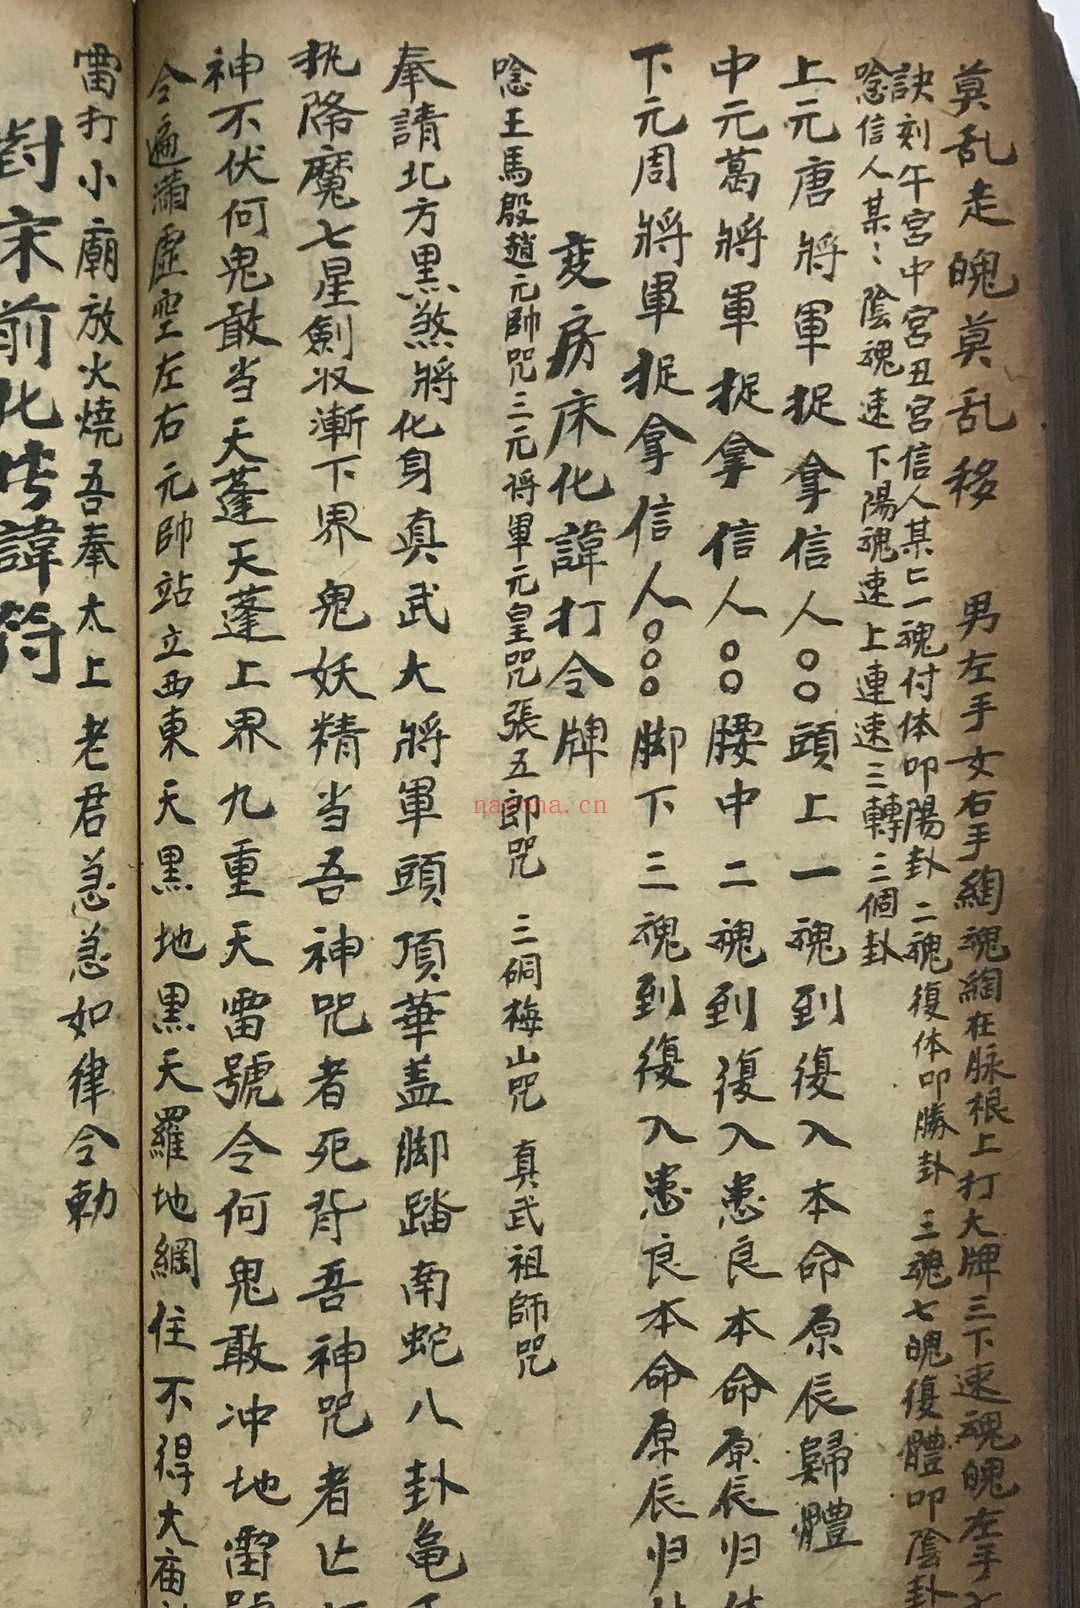 莫乱走魄莫乱移　男左手女右手綯魂綯在脉根上打大牌三下速魂魄左手
訣刻午宮中宮丑宮信人某亡一魂付体叩陽卦二魂復体叩勝卦三魂七魄復體叩陰卦
唸信人某〻陰魂速下陽魂速上連速三轉三個卦
上元唐將軍捉拿信人〇〇頭上一魂到復入本命原辰歸體
中元葛將軍捉拿信人〇〇腰中二魂到復入患良本命原辰归体
下元周將軍捉拿信人〇〇〇脚下三魂到復入患良本命原辰归
变房床化諱打令牌
唸王馬殷趙元帥咒三元将軍元皇咒張五郎咒　三硐梅山咒　真武祖師咒
奉請北方黑煞將化身真武大將軍頭頂華盖脚踏南蛇八卦亀
执降魔七星劍收漸下界鬼妖精当吾神咒者死背吾神咒者亡
神不伏何鬼敢当天蓬天蓬上界九重天雷號令何鬼敢冲地雷號
令遍满虛空左右元帥站立西東天黑地黑天羅地網住不得大庙
雷打小廟放火燒吾奉太上老君急急如律令勅
對床前化諱符
nayona.cn